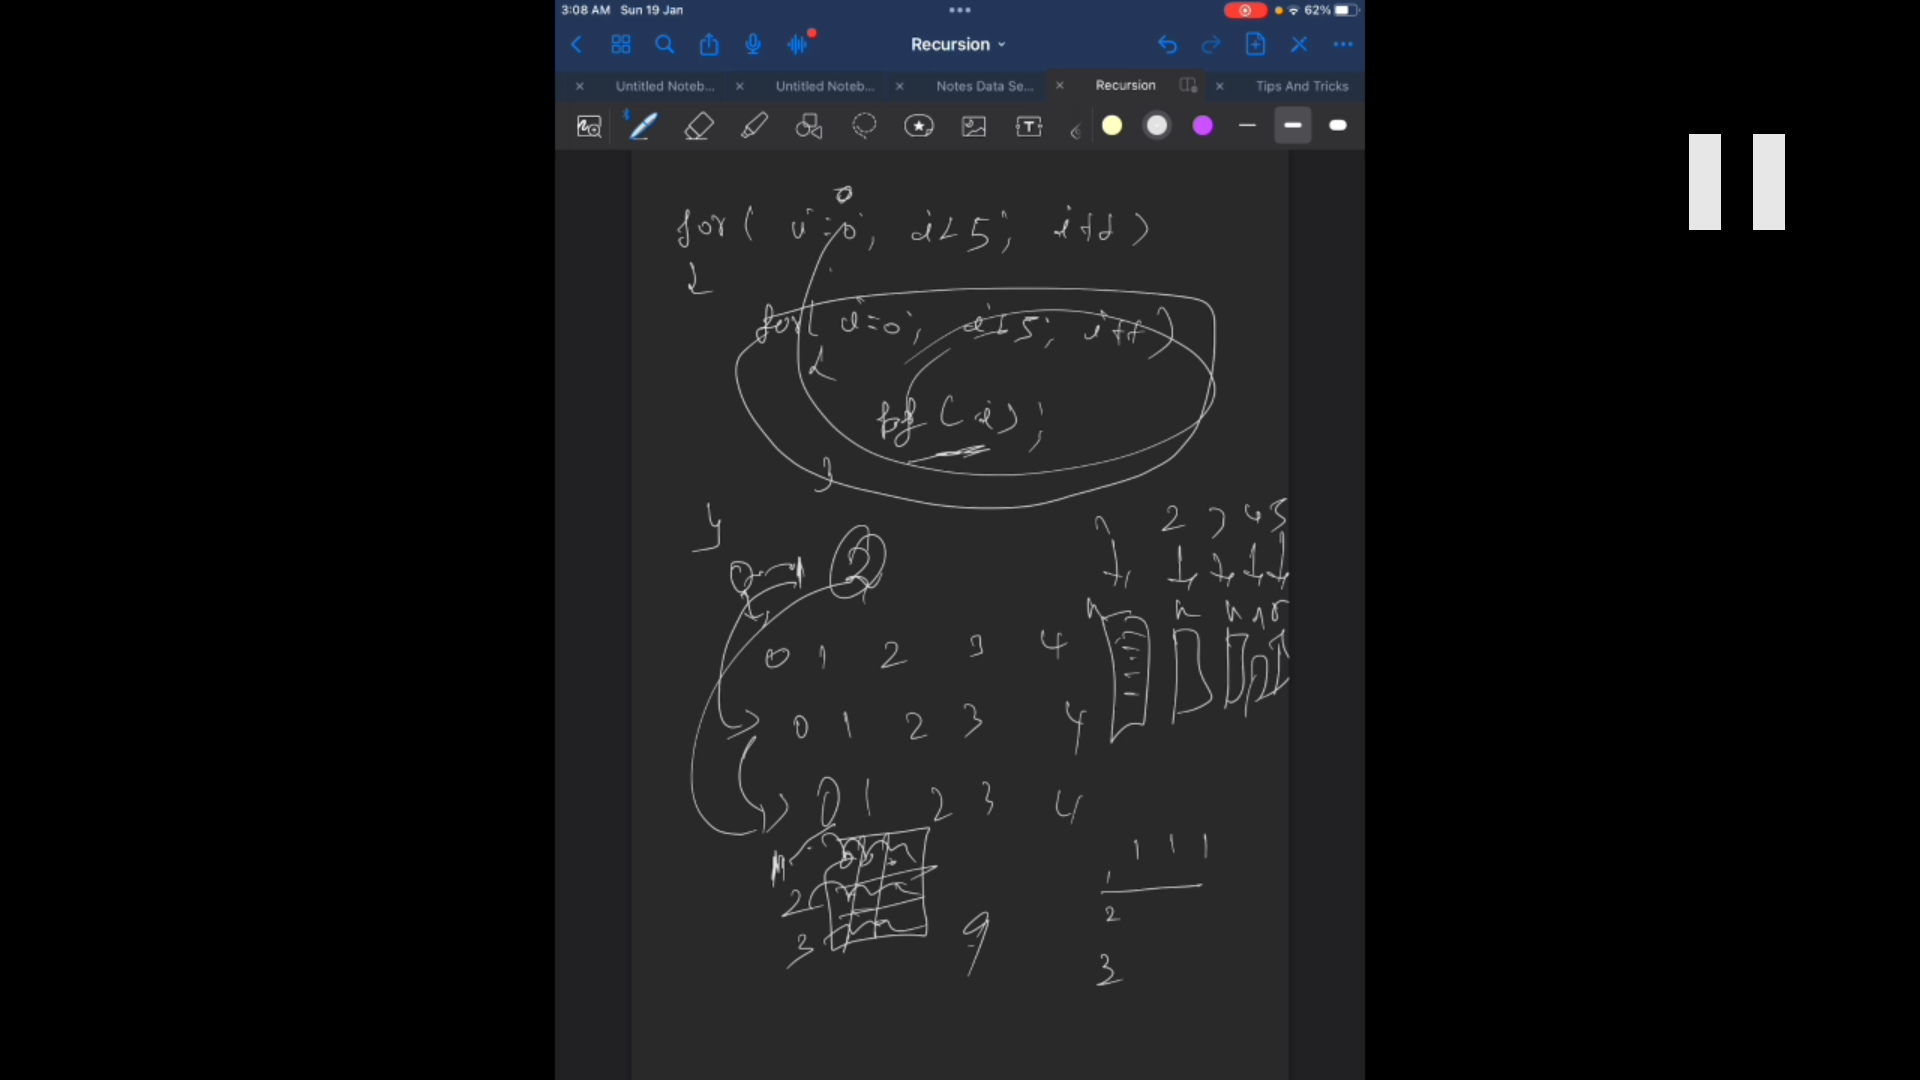 3:08 AM Sun 19 Jan
62%
Recursion
Untitled Noteb...
Untitled Noteb...
Notes Data Se...
Recursion
Tips And Tricks
0
for( i=0; i<5; i++)
{
for( i=0; i<5; i++)
{
pf(i);
}
}
0 1 2
2 3 4 5
n n n n
0 1 2 3 4
0 1 2 3 4
0 1 2 3 4
1
2
3
9
1 1 1
1
2
3